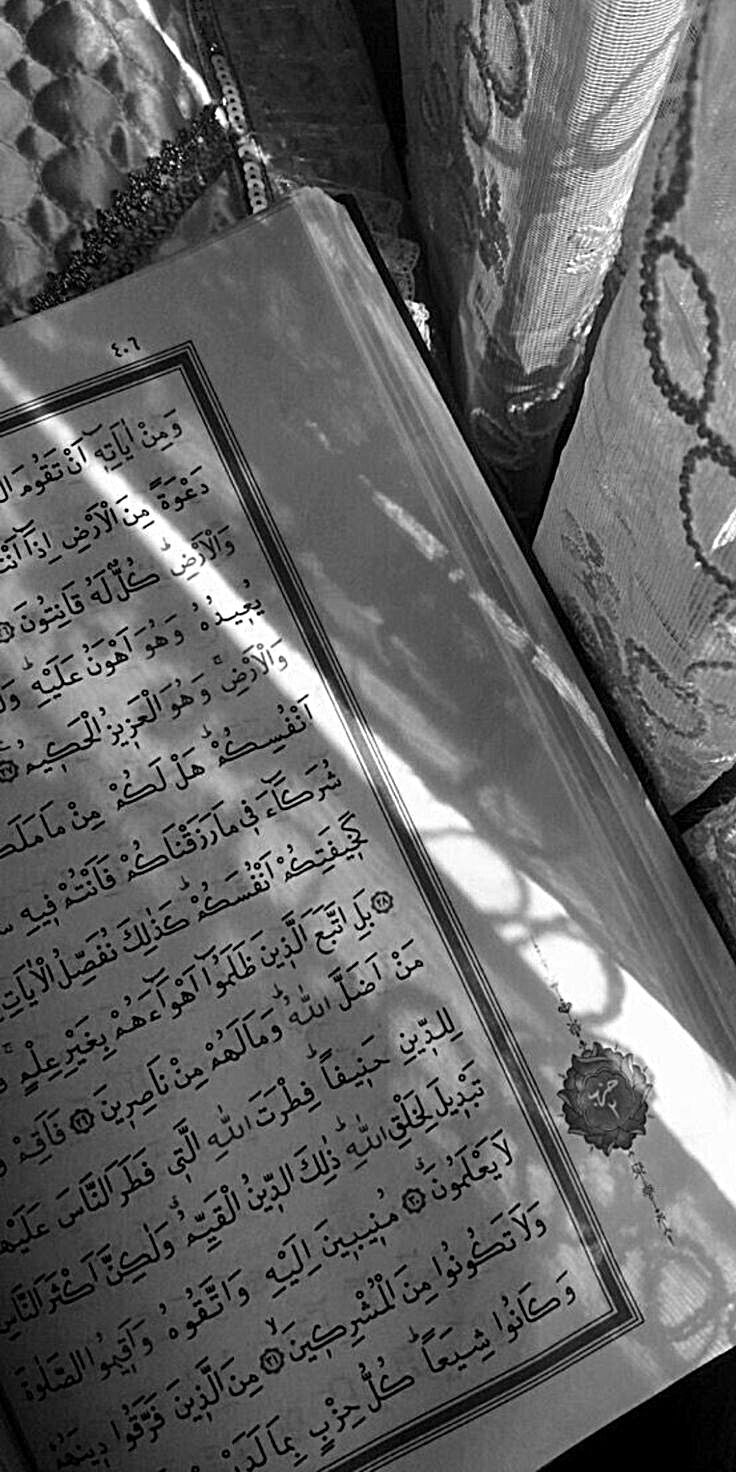 ٤٠٦
وَمِنْ اٰيَاتِه۪ٓ اَنْ تَقُومَ
دَعْوَةً مِنَ الْاَرْضِ اِذَٓا
وَالْاَرْضِۜ كُلٌّ لَهُ قَانِتُونَ
يُع۪يدُهُ وَهُوَ اَهْوَنُ عَلَيْهِۜ
وَالْاَرْضِۚ وَهُوَ الْعَز۪يزُ الْحَك۪يمُ ﴿٢٧﴾
اَنْفُسِكُمْۜ هَلْ لَكُمْ مِنْ مَا
شُرَكَٓاءَ ف۪ي مَا رَزَقْنَاكُمْ فَاَنْتُمْ ف۪يهِ
كَخ۪يفَتِكُمْ اَنْفُسَكُمْۜ كَذٰلِكَ نُفَصِّلُ الْاٰيَاتِ
﴿٢٨﴾ بَلِ اتَّبَعَ الَّذ۪ينَ ظَلَمُٓوا اَهْوَٓاءَهُمْ بِغَيْرِ عِلْمٍۚ
مَنْ اَضَلَّ اللّٰهُۜ وَمَا لَهُمْ مِنْ نَاصِر۪ينَ ﴿٢٩﴾ فَاَقِمْ
لِلدّ۪ينِ حَن۪يفًاۜ فِطْرَتَ اللّٰهِ الَّت۪ي فَطَرَ النَّاسَ
تَبْد۪يلَ لِخَلْقِ اللّٰهِۜ ذٰلِكَ الدّ۪ينُ الْقَيِّمُۗ وَلٰكِنَّ اَكْثَرَ النَّاسِ
لَا يَعْلَمُونَۗ ﴿٣٠﴾ مُن۪يب۪ينَ اِلَيْهِ وَاتَّقُوهُ وَاَق۪يمُوا الصَّلٰوةَ
وَلَا تَكُونُوا مِنَ الْمُشْرِك۪ينَۙ ﴿٣١﴾ مِنَ الَّذ۪ينَ فَرَّقُوا د۪ينَهُمْ
وَكَانُوا شِيَعًاۜ كُلُّ حِزْبٍ بِمَا